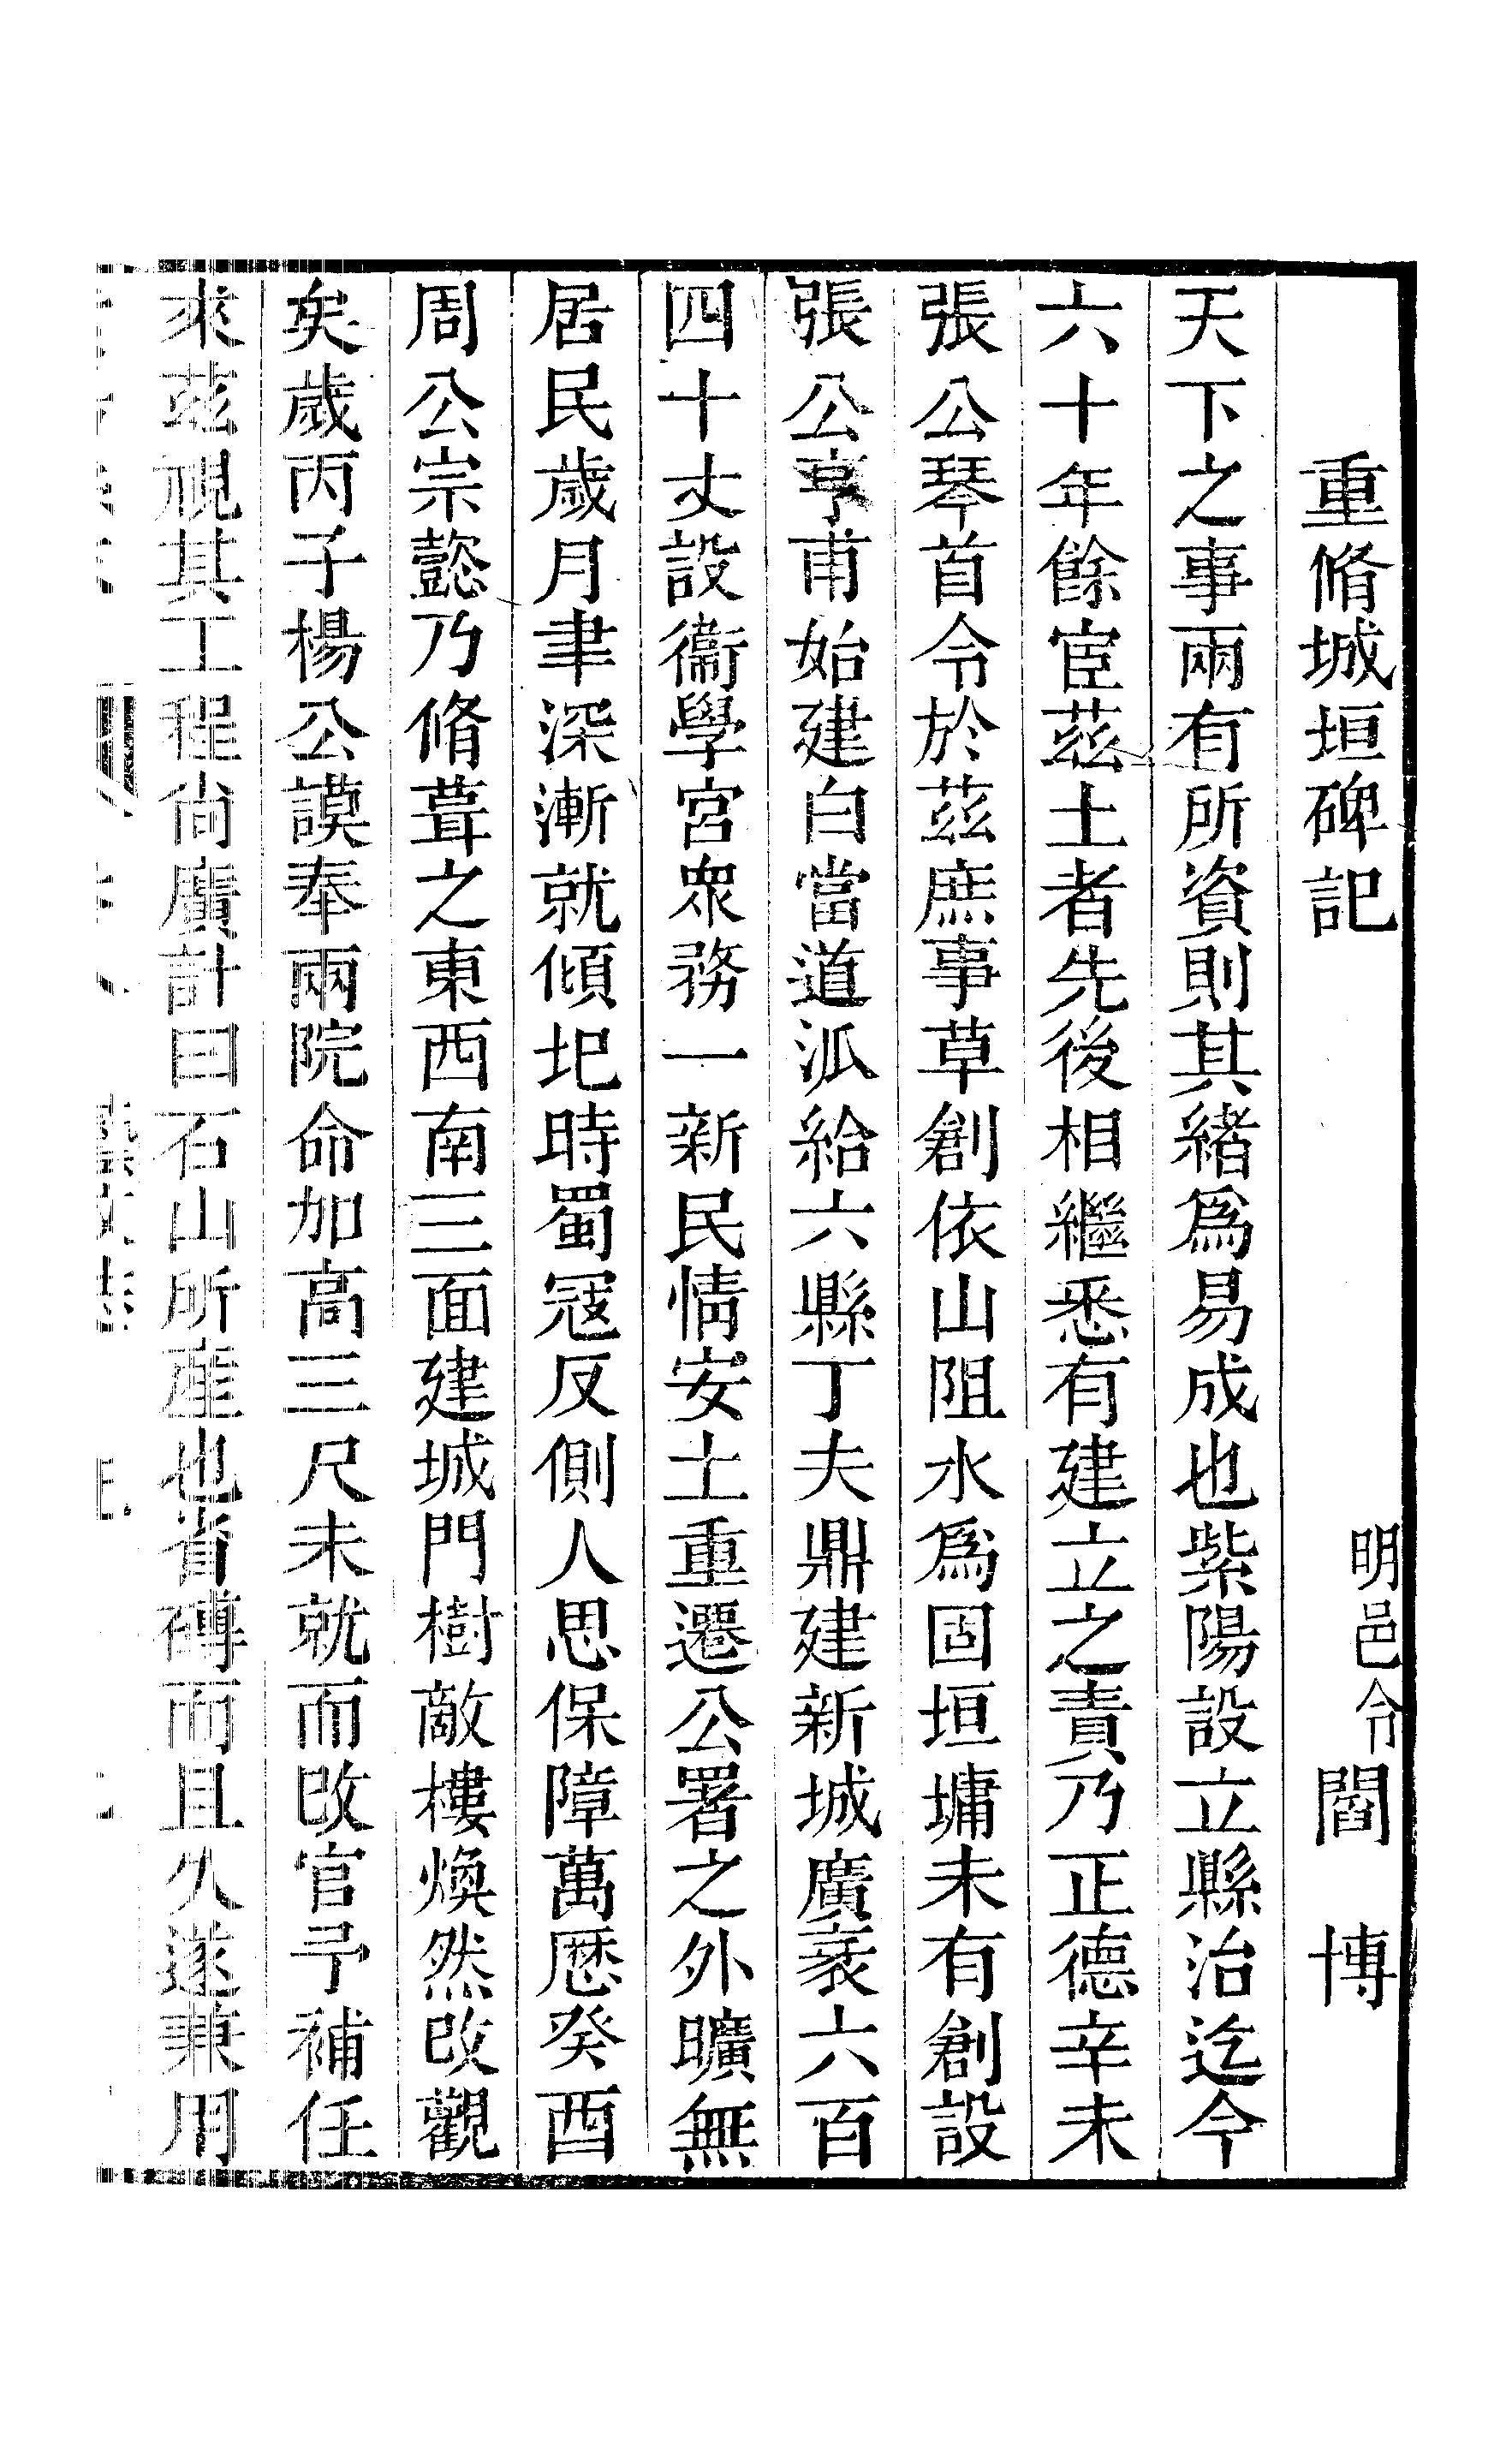 重脩城垣碑記　明邑令　閻博
天下之事兩有所資則其緒爲易成也紫陽設立縣治迄今
六十年餘宦茲土者先後相繼悉有建立之責乃正德辛未
張公琴首令於茲庶事草創依山阻水爲固垣墉未有創設
張公亨甫始建白當道泒給六縣丁夫鼎建新城廣袤六百
四十丈設衞學宮衆務一新民情安土重遷公署之外曠無
居民歲月聿深漸就傾圯時蜀冦反側人思保障萬厯癸酉
周公宗懿乃脩葺之東西南三面建城門樹敵樓煥然改觀
矣歲丙子楊公謨奉兩院命加高三尺未就而改官予補任
來茲視其工程尙廣計曰石山所産也省磚而且久遂兼用